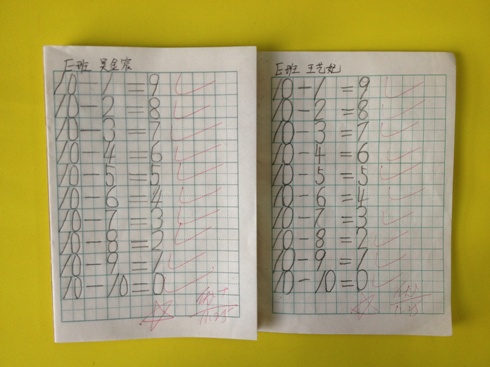 E班
10-1=9
10-2=8
10-3=7
10-4=6
10-5=5
10-6=4
10-7=3
10-8=2
10-9=7
10-10=0
E班 王艺妃
10-1=9
10-2=8
10-3=7
10-4=6
10-5=5
10-6=4
10-7=3
10-8=2
10-9=7
10-10=0